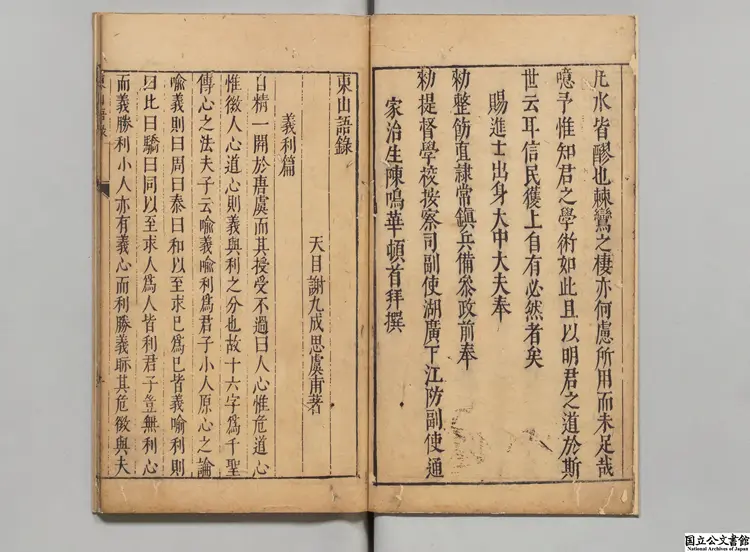 凡水皆醪也棘鸞之棲亦何慮所用而未足哉
噫予惟知君之學術如此且以明君之道於斯
世云耳信民獲上自有必然者矣
賜進士出身大中大夫奉
勑整飭直隸常鎮兵備叅政前奉
勑提督學校按察司副使湖廣下江防副使通
家治生陳鳴華頓首拜撰
東山語錄
天目謝九成思虞甫著
義利篇
自精一開於唐虞而其授受不過曰人心惟危道心
惟微人心道心則義與利之分也故十六字爲千聖
傳心之法夫子云喻義喻利爲君子小人原心之論
喻義則曰周曰泰曰和以至求已爲已皆義喻利則
曰比曰驕曰同以至求人爲人皆利君子豈無利心
而義勝利小人亦有義心而利勝義眎其危微與夫
東山語錄
国立公文書館
National Archives of Japan